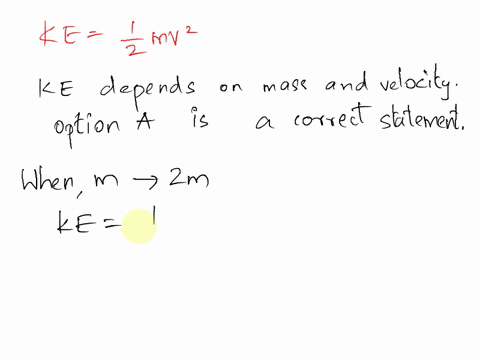 KE = 1/2 mv²
KE depends on mass and velocity.
option A is a correct statement.
When, m → 2m
KE = 1